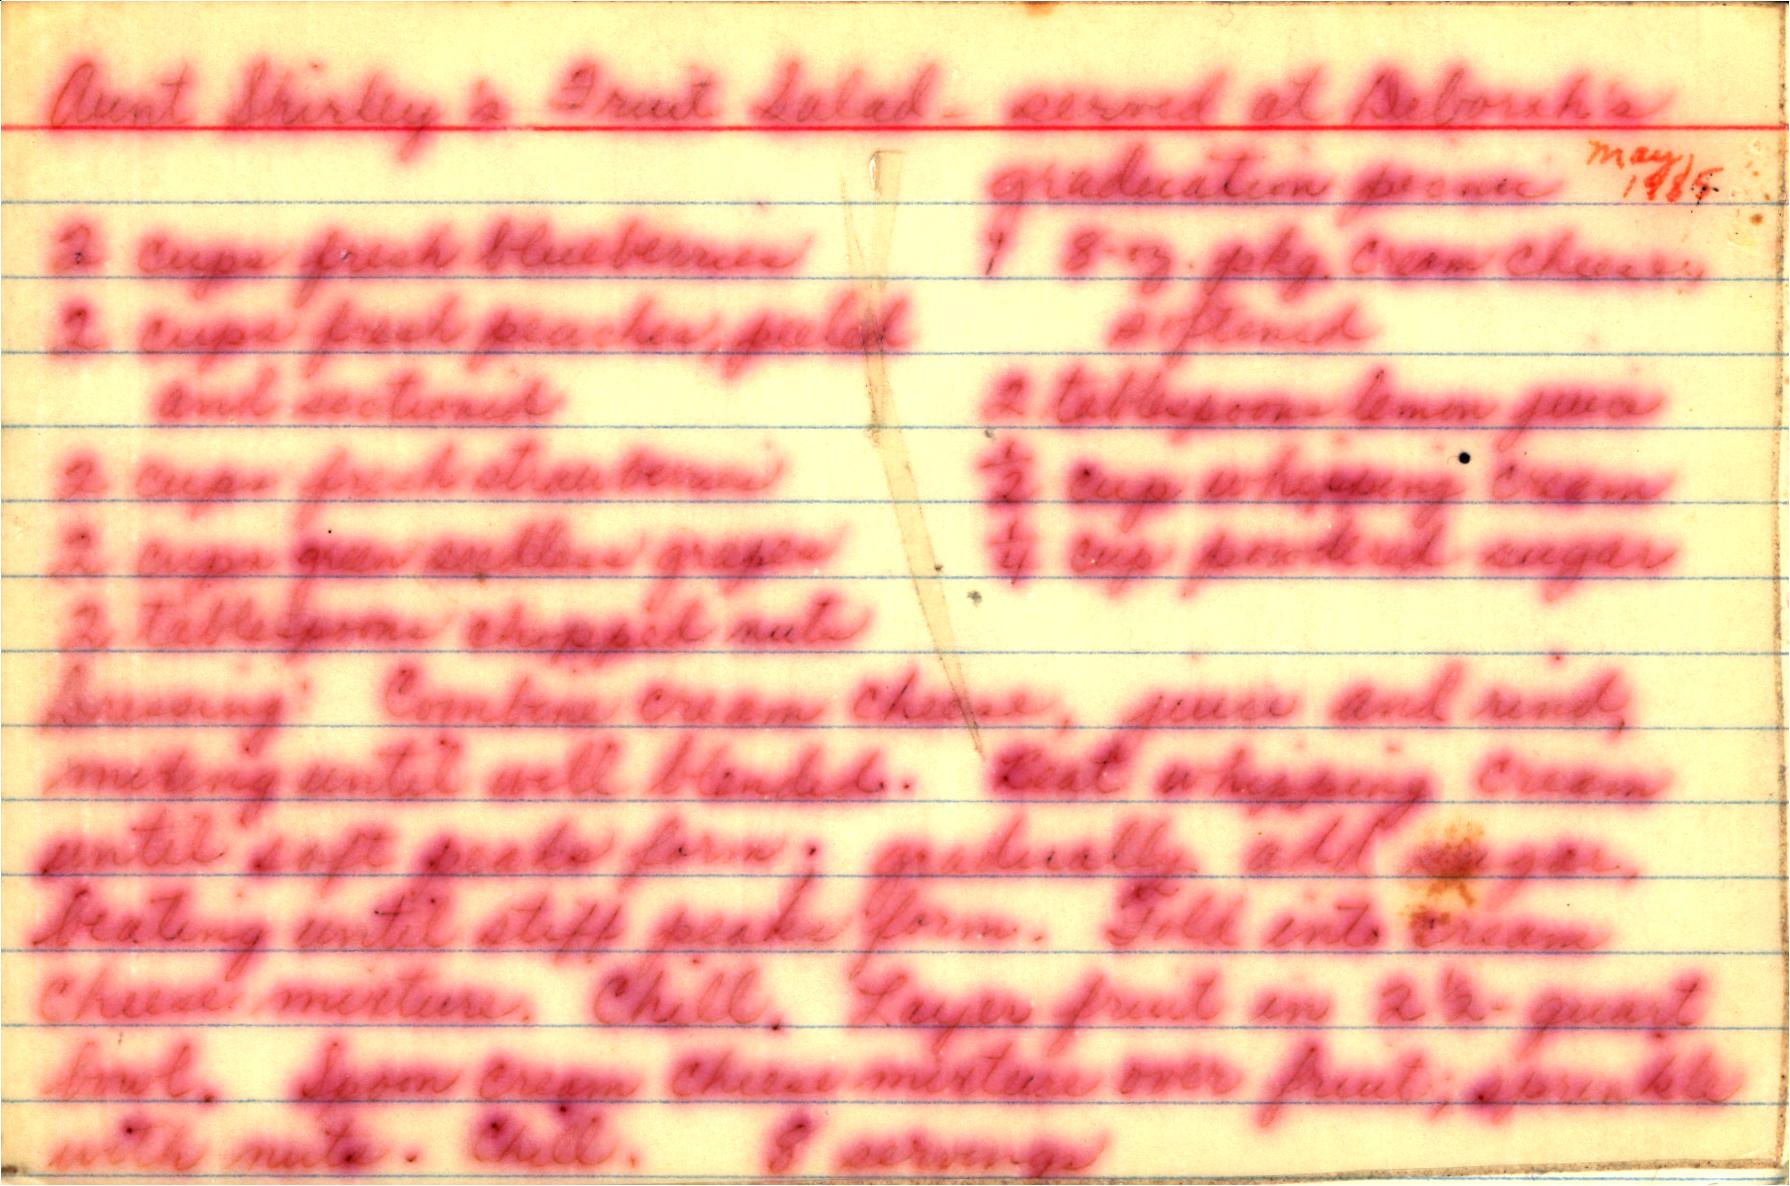 Aunt Shirley's Fruit Salad - served at Deborah's
graduation picnic
May
2 cups fresh blueberries
2 cups fresh peaches, peeled
and sectioned
2 cups fresh strawberries
2 cups green seedless grapes
2 tablespoons chopped nuts
1 8-oz. pkg. cream cheese,
softened
2 tablespoons lemon juice
1/2 cup whipping cream
1/4 cup powdered sugar
Dressing: Combine cream cheese, juice and rind,
mixing until well blended. Beat whipping cream
until soft peaks form; gradually add sugar,
beating until stiff peaks form. Fold into cream
cheese mixture. Chill. Layer fruit in 2 1/2-quart
bowl. Spoon cream cheese mixture over fruit; sprinkle
with nuts. Chill. 8 servings